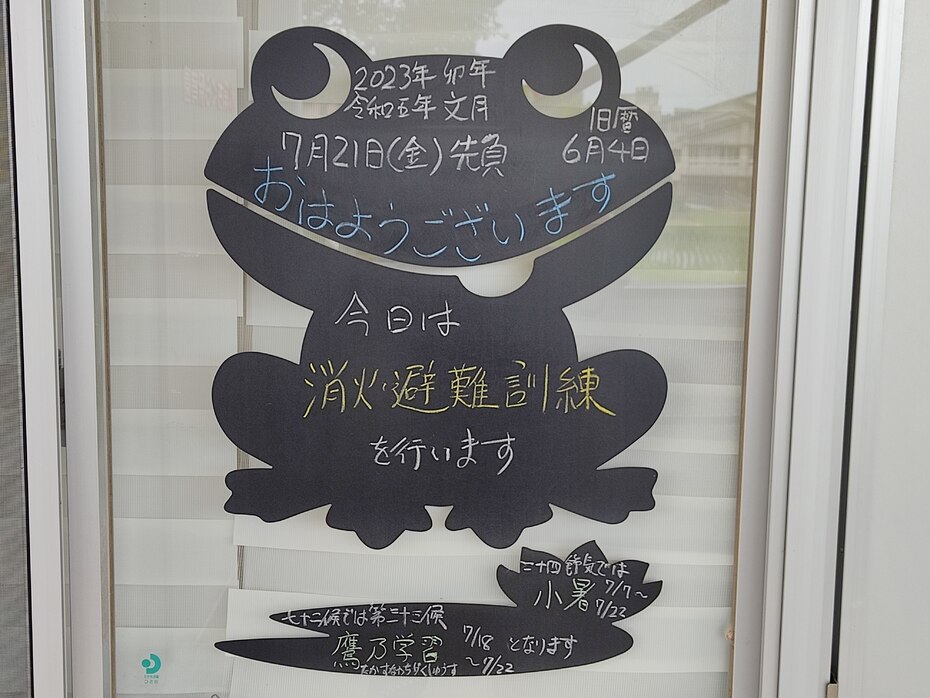 2023年 卯年
令和五年 文月
7月21日(金) 先負
旧暦
6月4日
おはようございます
今日は
消火・避難訓練
を行います
二十四節気では
小暑 7/7～
7/22
七十二候では第三十三候
鷹乃学習
7/18
～7/22
となります